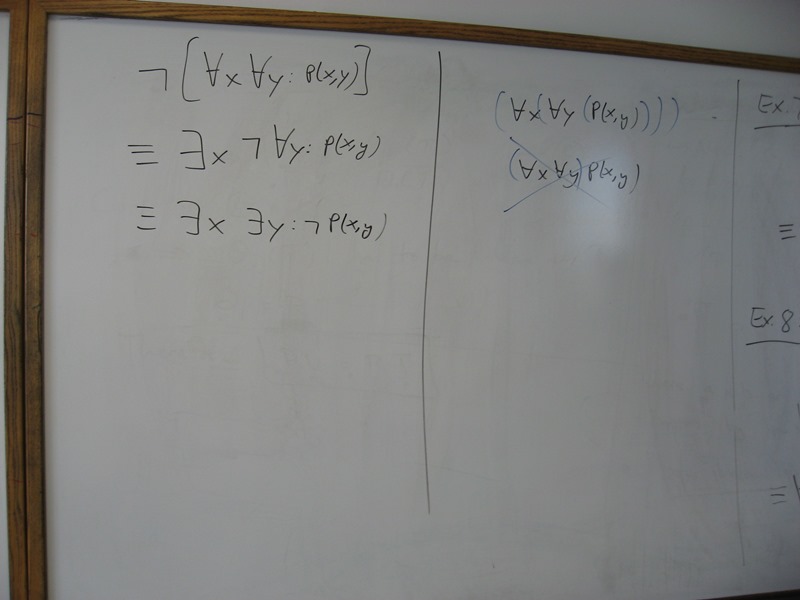 ¬[∀x ∀y: P(x,y)]
≡ ∃x ¬∀y: P(x,y)
≡ ∃x ∃y: ¬P(x,y)
(∀x(∀y (P(x,y))))
(∀x ∀y) P(x,y)
Ex.
≡
Ex. 8.
≡